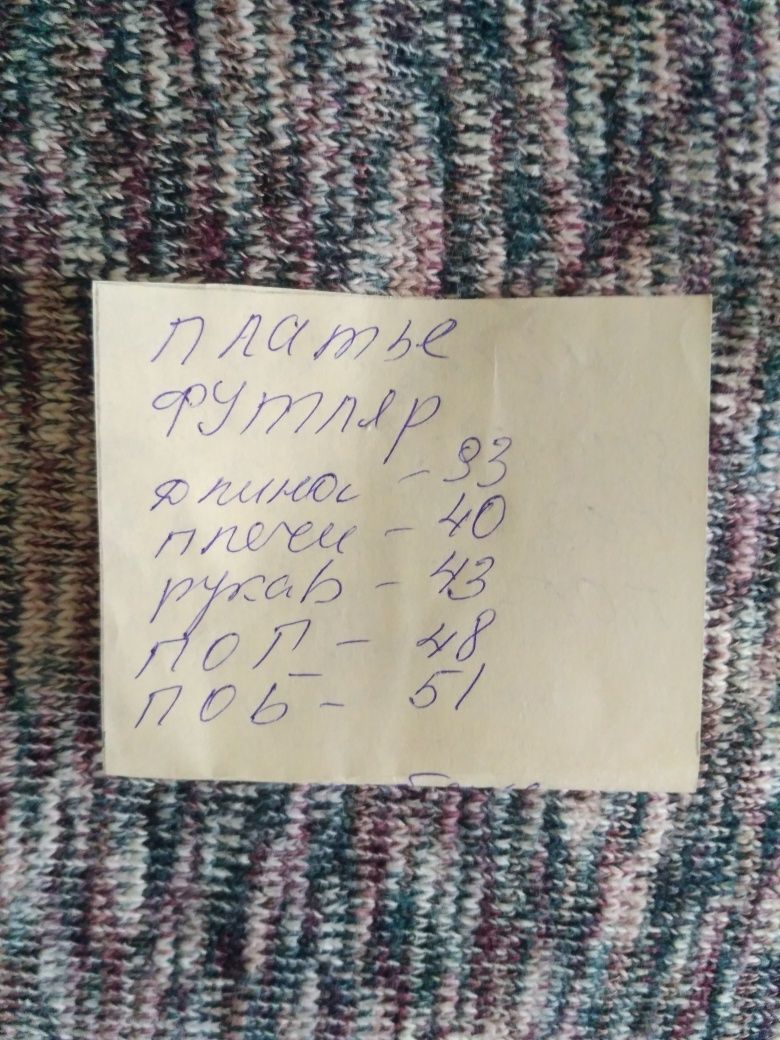 ПЛАТЬЕ
ФУТЛЯР
длина - 93
плечи - 40
рукав - 43
ПОГ - 48
ПОБ - 51